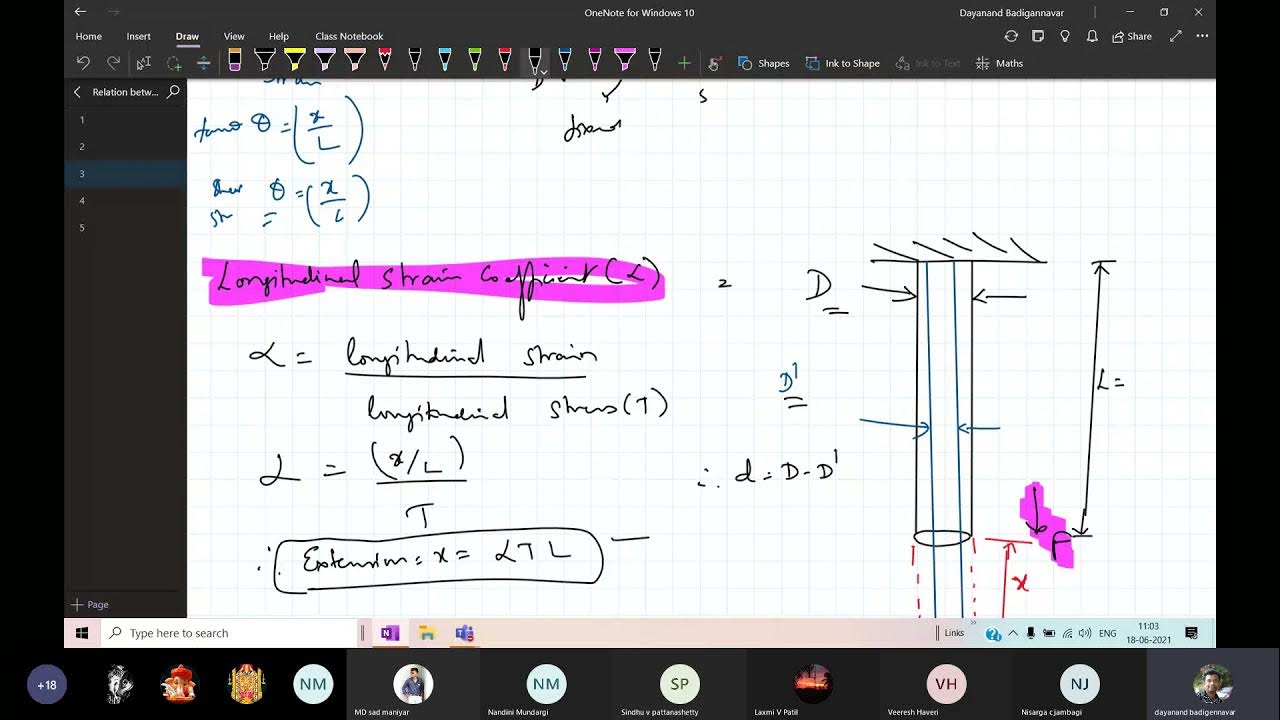 OneNote for Windows 10
Dayanand Badigannavar
Home Insert Draw View Help Class Notebook
Share
Shapes
Ink to Shape
Ink to Text
Maths
Relation betw...
1
2
3
4
5
Page
strain
D
S
tanθ θ = (x/L)
θ = (x/L)
Longitudinal strain coefficient (α)
=
α = longitudinal strain
longitudinal stress (T)
α = (x/L)
T
∴ Extension = x = αTL
D
D'
∴ d = D - D'
L =
F
x
Type here to search
Links
ENG
11:03
18-06-2021
+18
NM
NM
SP
VH
NJ
MD sad maniyar
Nandini Mundargi
Sindhu v pattanashetty
Laxmi V Patil
Veeresh Haveri
Nisarga c jambagi
dayanand badigannavar